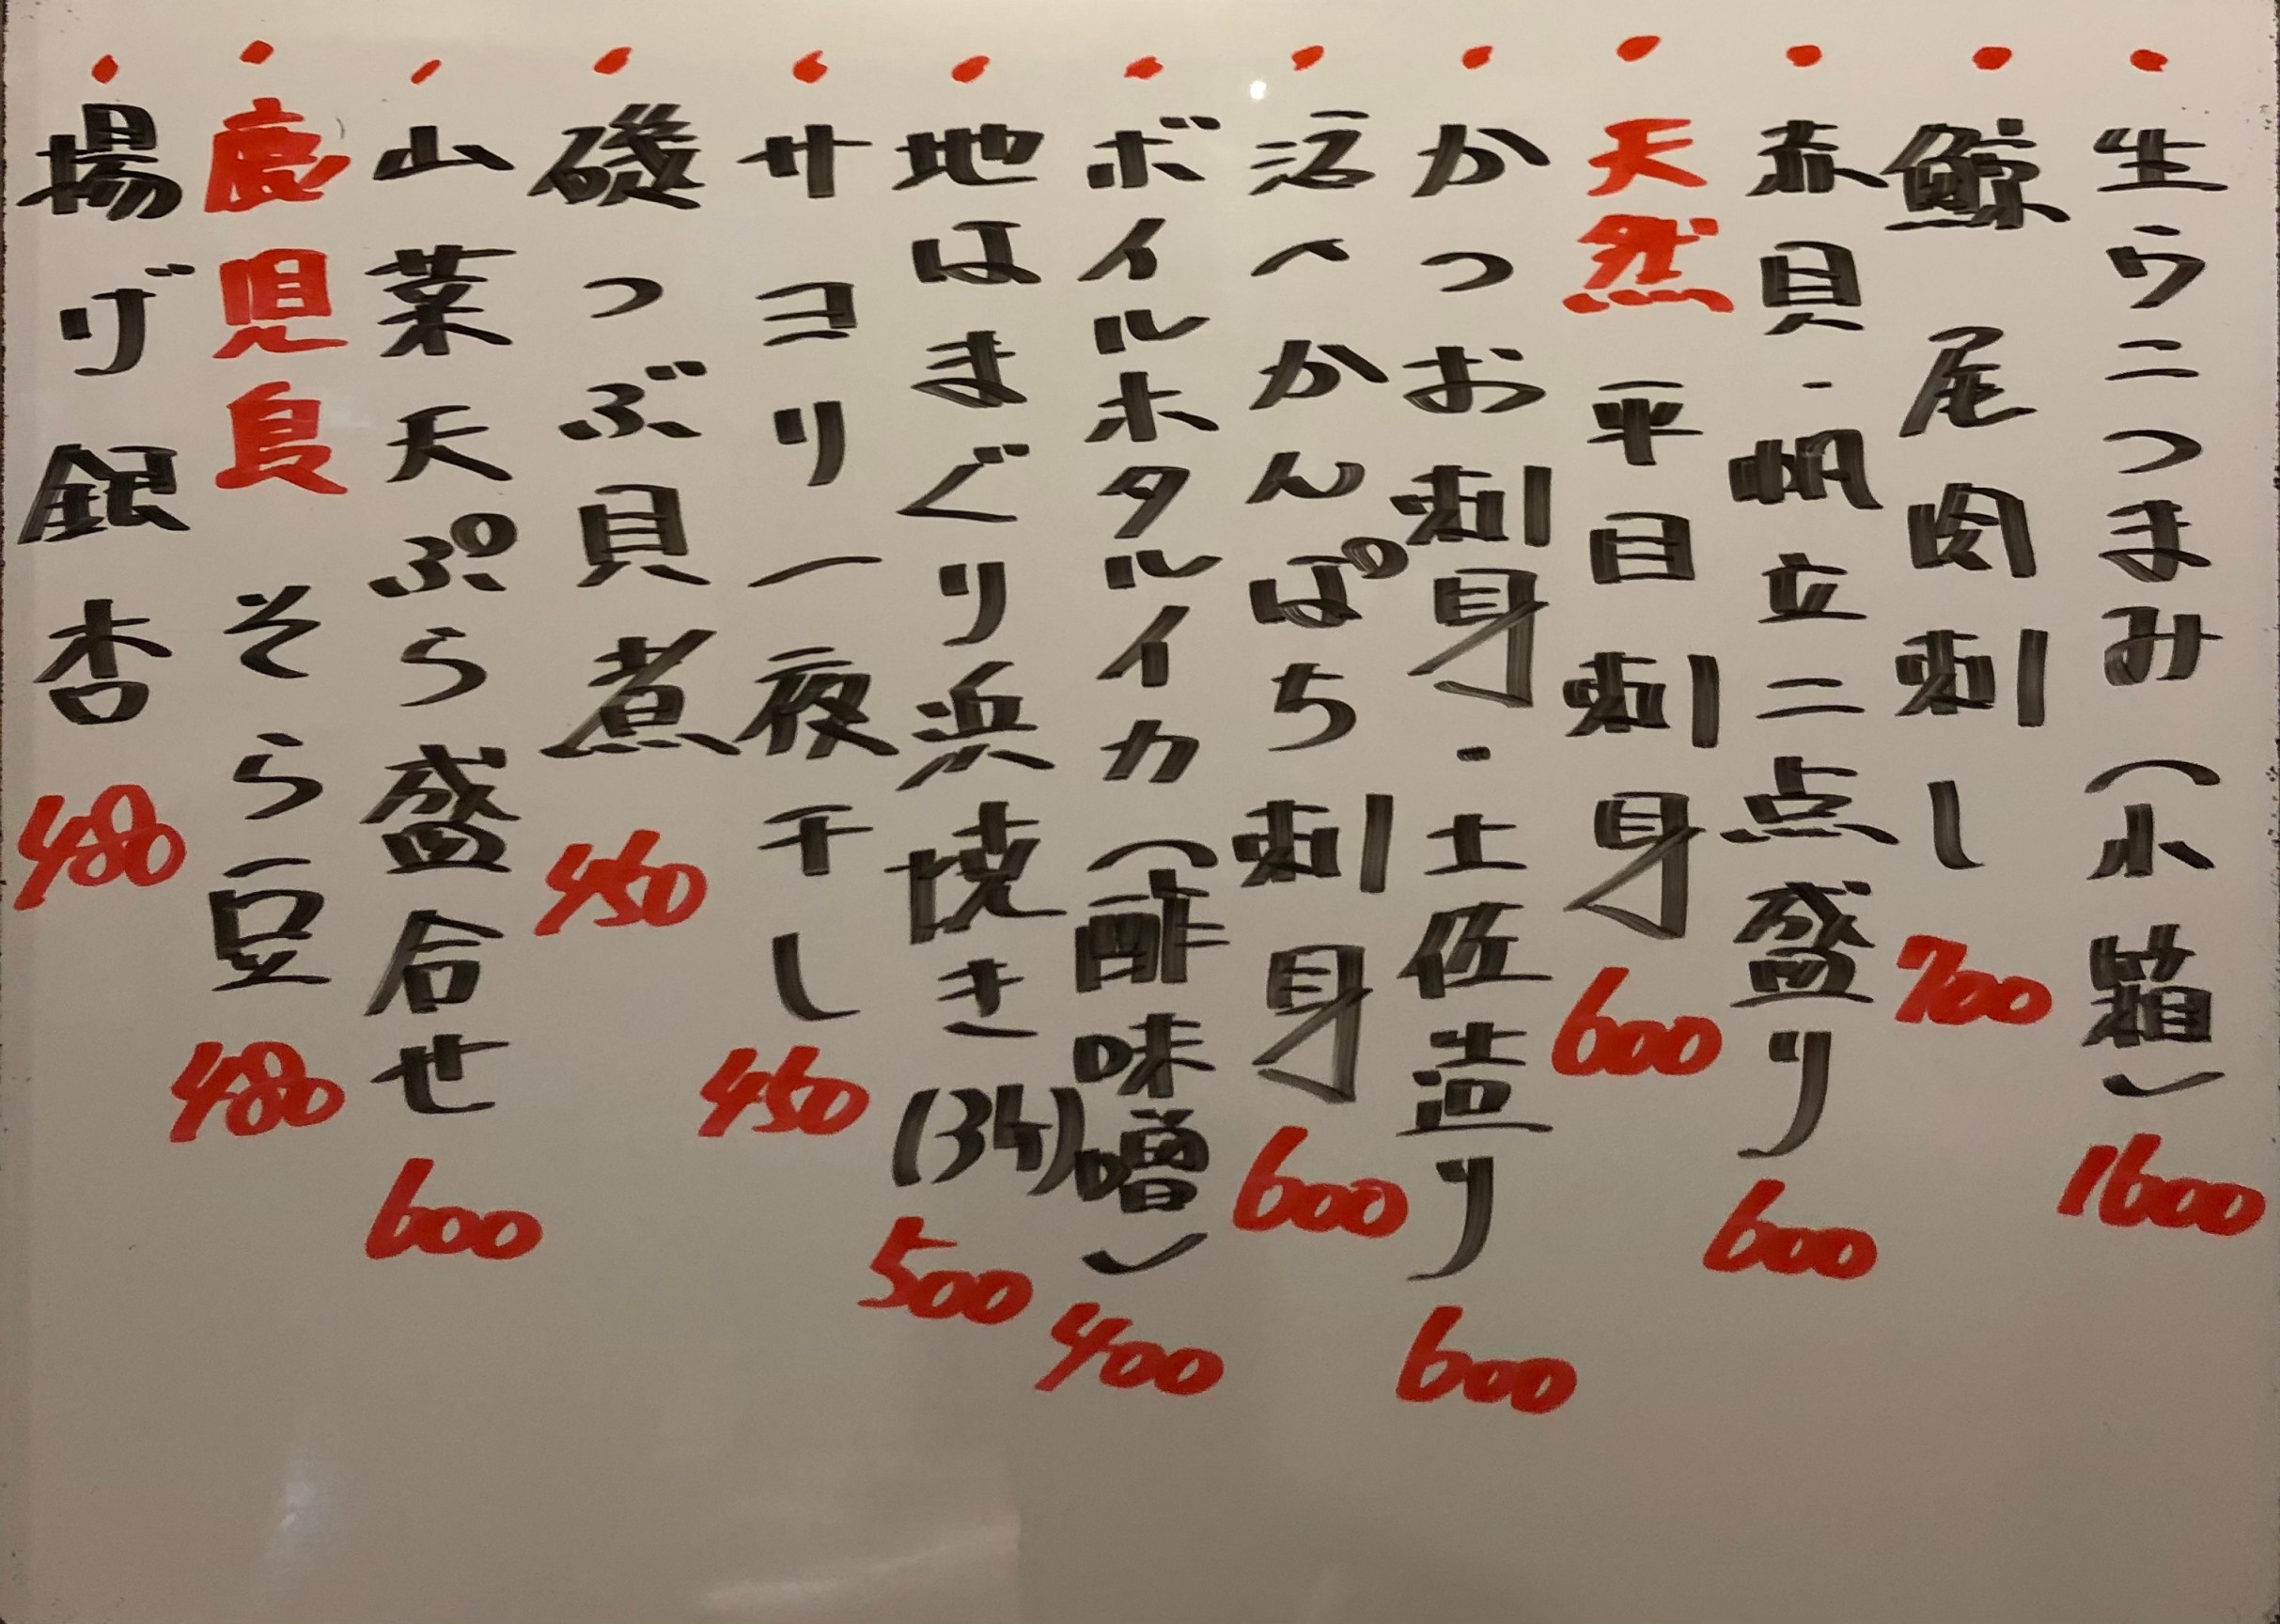 ・生ウニつまみ(小箱) 1600
・鯨 尾肉刺し 700
・赤貝・帆立二点盛り 600
・天然 平目刺身 600
・かつお刺身・土佐造り 600
・活〆かんぱち刺身 600
・ボイルホタルイカ(酢味噌) 400
・地はまぐり浜焼き(3ヶ) 500
・サヨリ一夜干し 450
・磯つぶ貝煮 450
・山菜天ぷら盛合せ 600
・鹿児島 そら豆 480
・揚げ銀杏 480